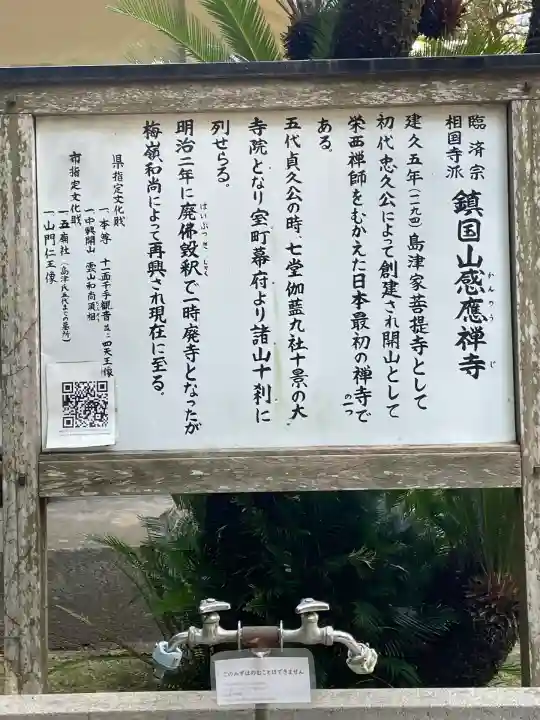 臨済宗
相国寺派
鎮国山感應禅寺
かんのうじ
建久五年(一一九四)島津家菩提寺として
初代忠久公によって創建され開山として
栄西禅師をむかえた日本最初の禅寺で
の一つ
ある。
五代貞久公の時、七堂伽藍九社十景の大
寺院となり室町幕府より諸山十刹に
列せらる。
明治二年に廃佛毀釈で一時廃寺となったが
はいぶつきしゃく
梅嶺和尚によって再興され現在に至る。
県指定文化財
一、本尊 十一面千手観音並に四天王像
一、中興開山 雲山和尚頂相
市指定文化財
一、五廟社(島津氏五代までの墓所)
一、山門仁王像
このみずはのむことはできません